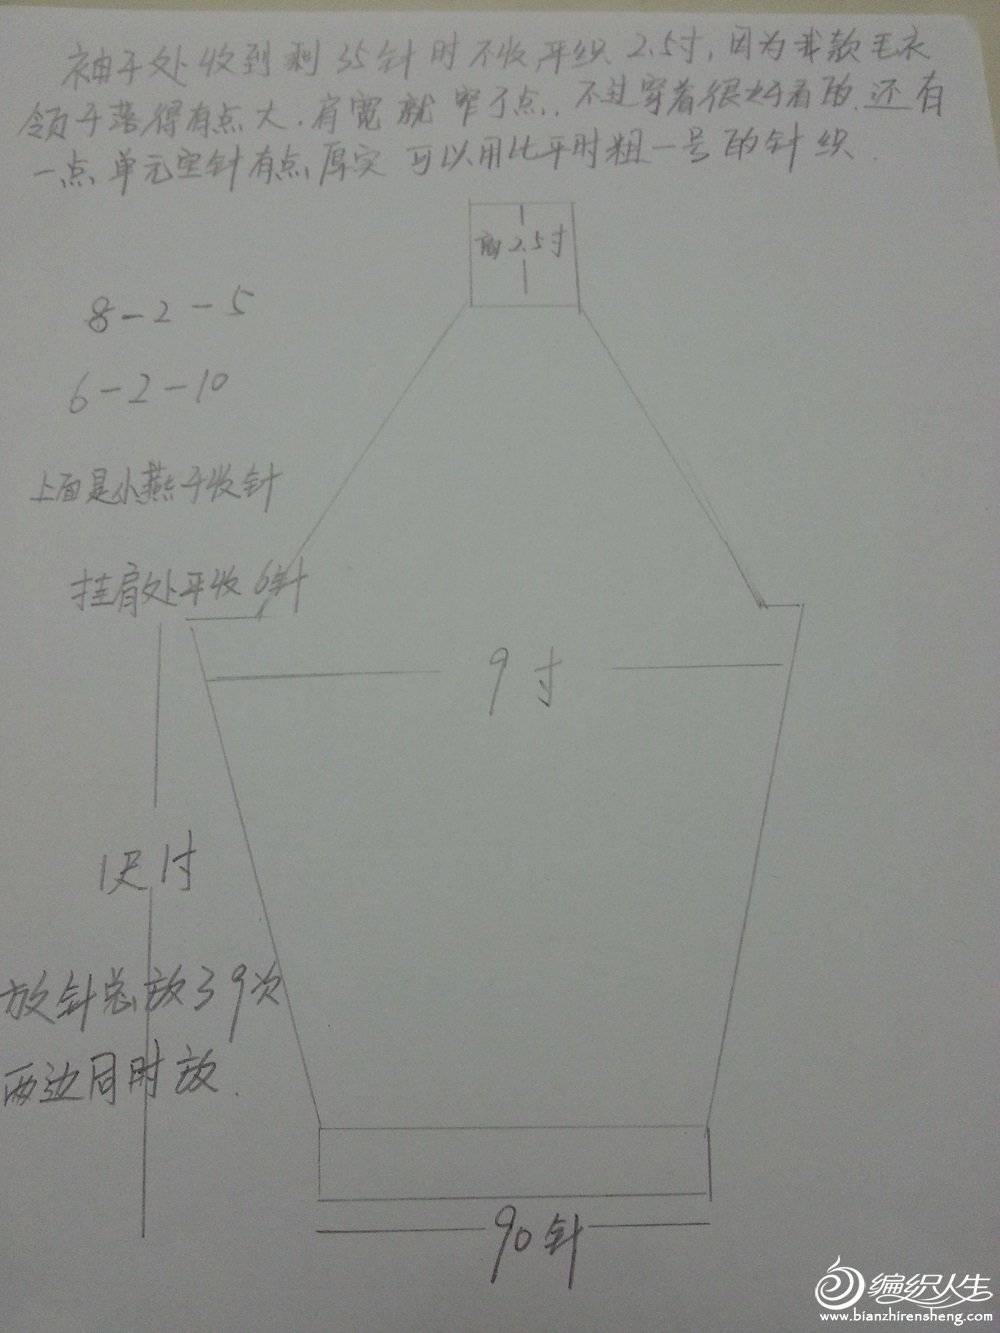 袖子处收到剩35针时不收平织2.5寸,因为此款毛衣
领子落得有点大.肩宽就窄了点.不过穿着很好看的.还有
一点.单元宝针有点厚实 可以用比平时粗一号的针织.
肩2.5寸
8-2-5
6-2-10
上面是小燕子收针
挂肩处平收6针
9寸
1尺1寸
放针总放39次
两边同时放.
90针
编织人生
www.bianzhirensheng.com